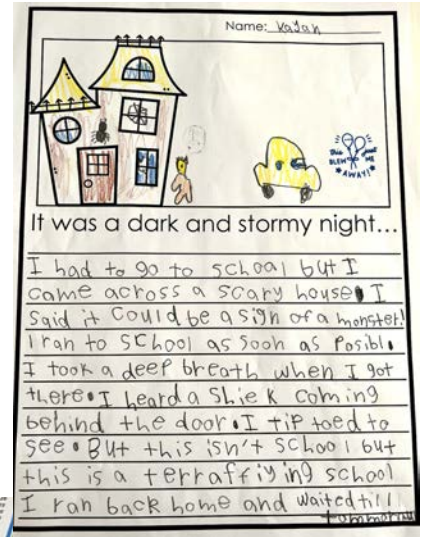 Name: Kayah
this about
BLEW ME
AWAY!
It was a dark and stormy night...
I had to go to school but I
came across a scary house. I
said it could be a sign of a monster!
I ran to school as soon as Posibl.
I took a deep breath when I got
there. I heard a Shiek coming
behind the door. I tip toed to
see. But this isn't schoo but
this is a terraffiying school
I ran back home and waited till
tommorrow